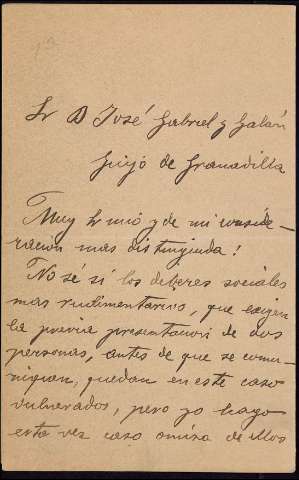 Sr D José Gabriel y Galán
Guijo de Granadilla
Muy Sr mio y de mi conside-
racion mas distinguida!
No sé si los deberes sociales
mas rudimentarios, que exigen
la previa presentacion de dos
personas, antes de que se comu-
niquen, quedan en este caso
vulnerados, pero yo hago
esta vez caso omiso de ellos